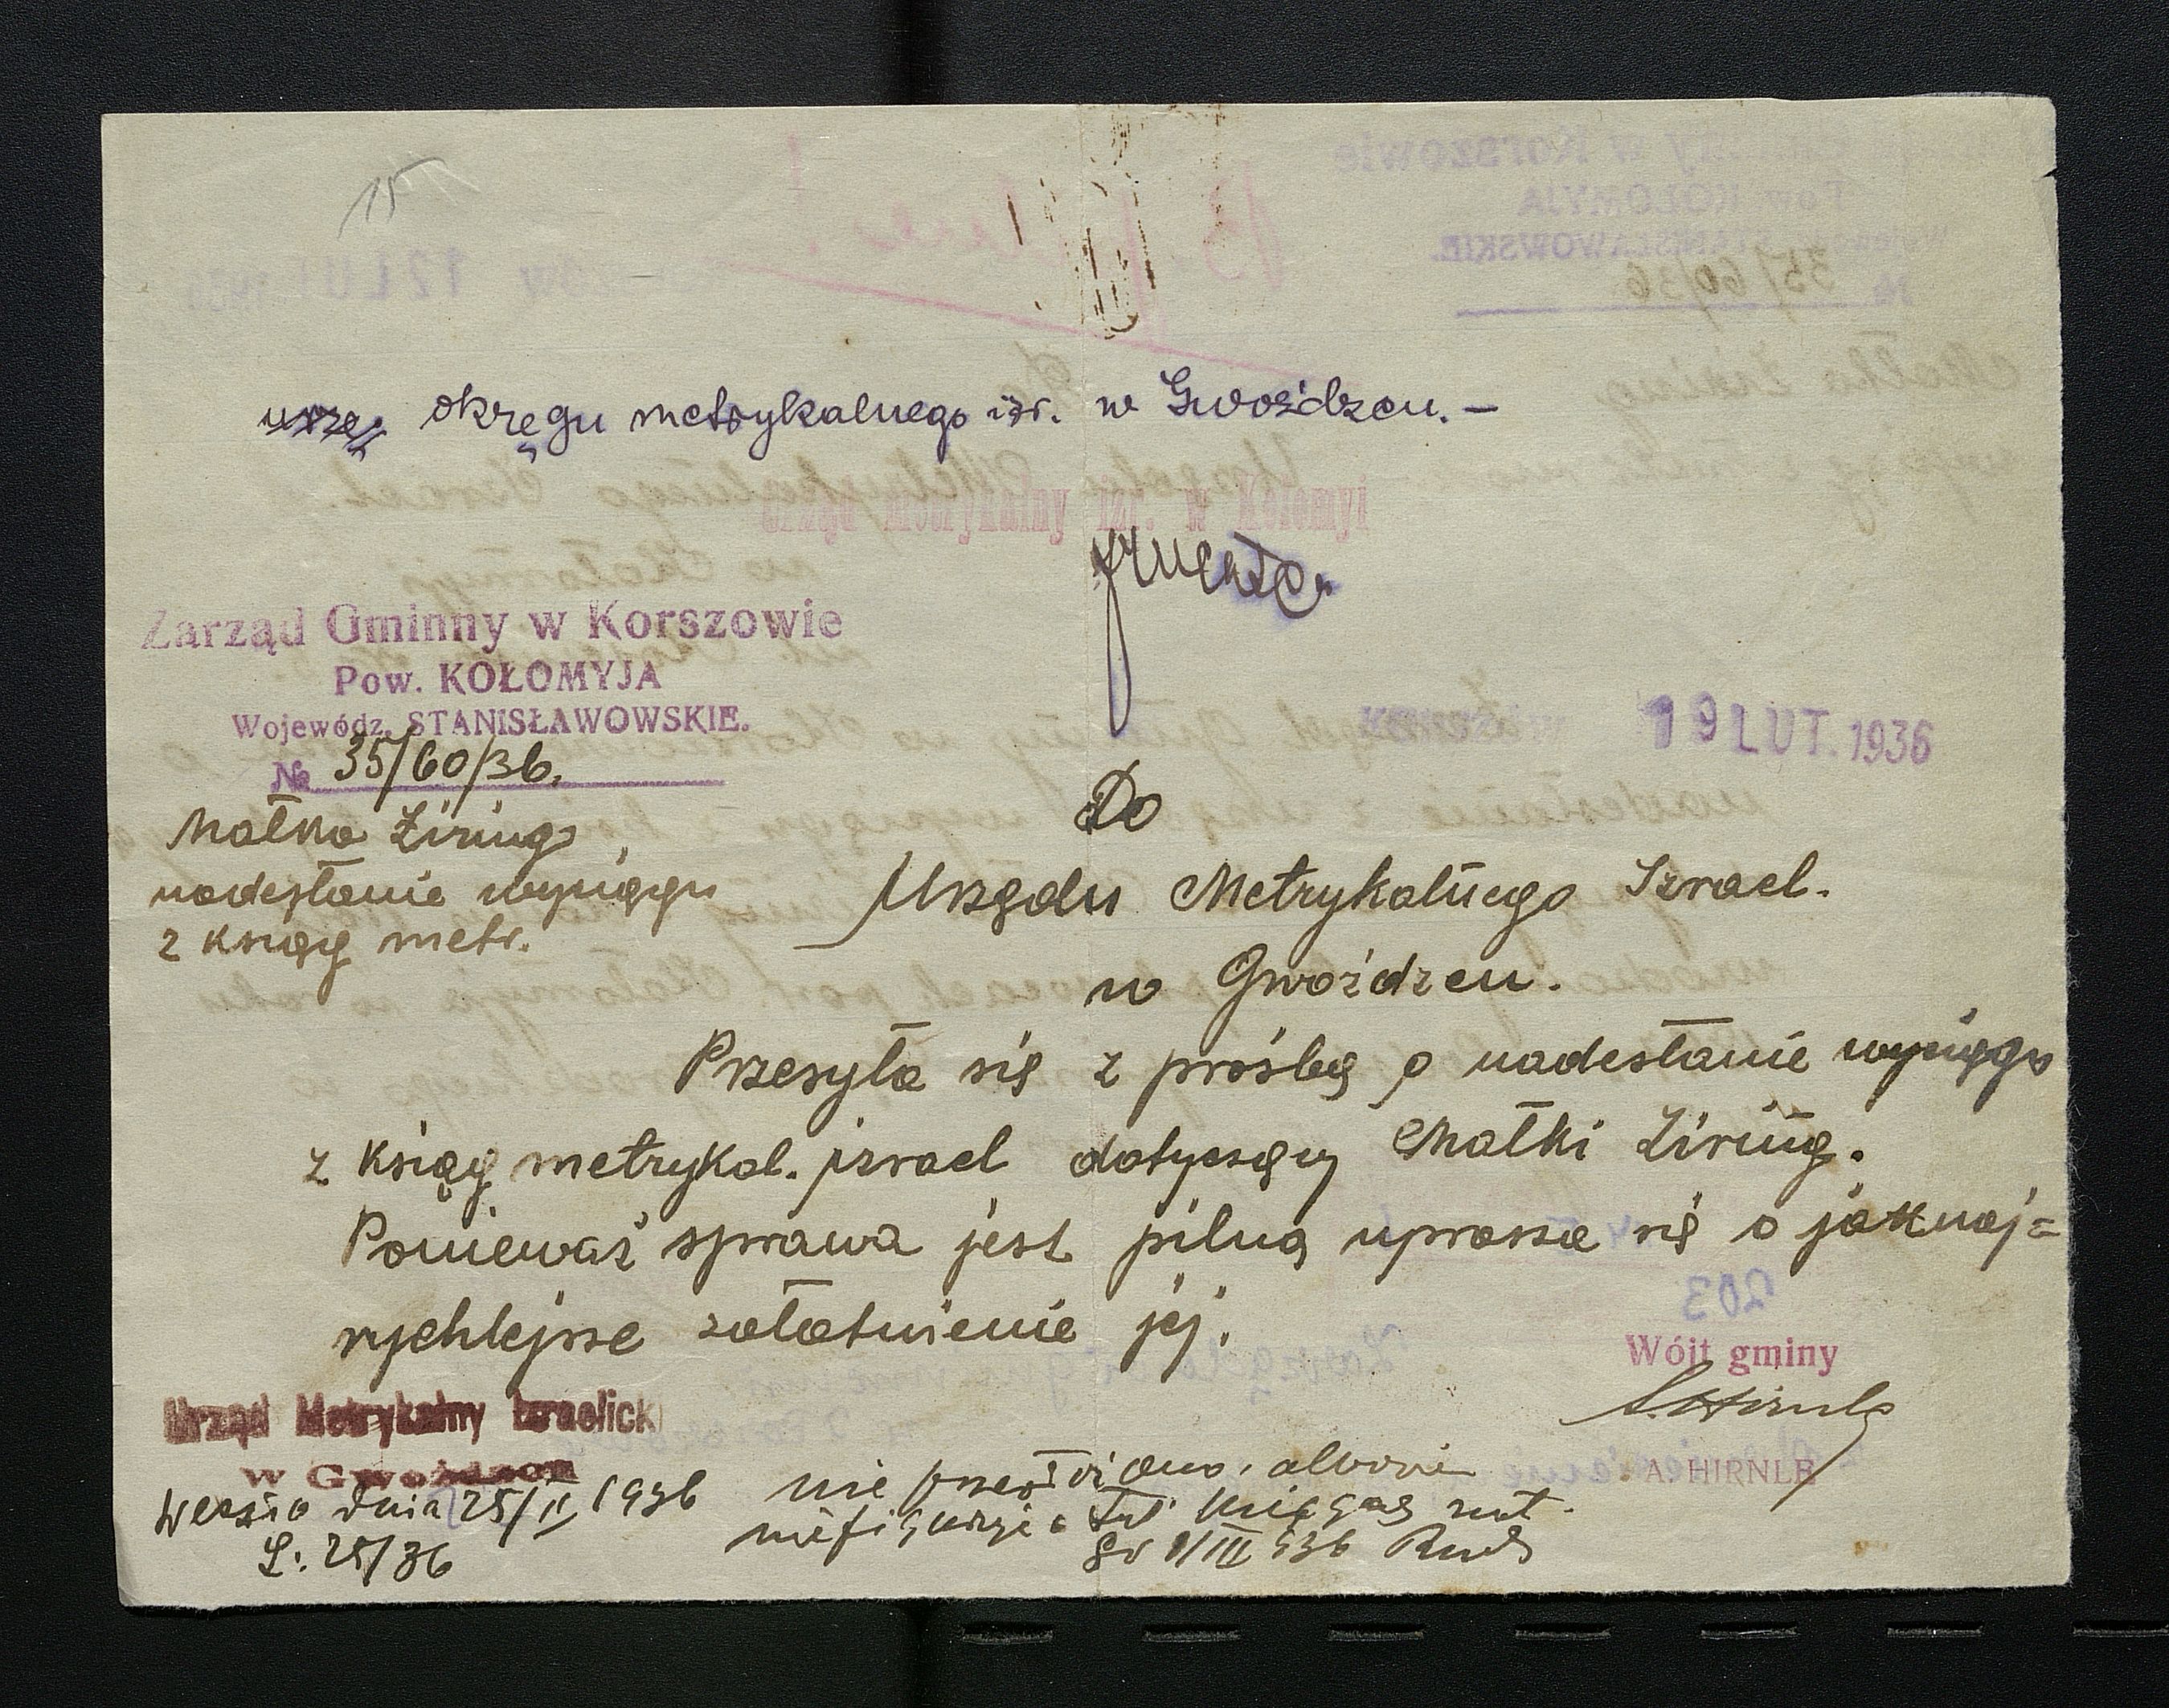 15
okręgu metrykalnego izr. w Gwoźdzcu. —
Urząd Metrykalny izr. w Kołomyi
Zarząd Gminny w Korszowie
Pow. KOŁOMYJA
Wojewódz. STANISŁAWOWSKIE.
№ 35/60/36.
19 LUT. 1936
Małka Ziring,
nadesłanie wyciągu
z księg metr.
Do
Urzędu Metrykalnego Izrael.
w Gwoźdzcu.
Przesyła się z prośbą o nadesłanie wyciągu
z księg metrykal. izrael dotyczący Małki Ziring.
Ponieważ sprawa jest pilną uprasza się o jaknaj=
rychlejsze załatwienie jej.
Wójt gminy
A. HIRNLE
Urząd Metrykalny Izraelicki
w Gwoźdzcu
Weszło dnia 25/II 1936
L: 25/36
nie
księgag
1/III 936